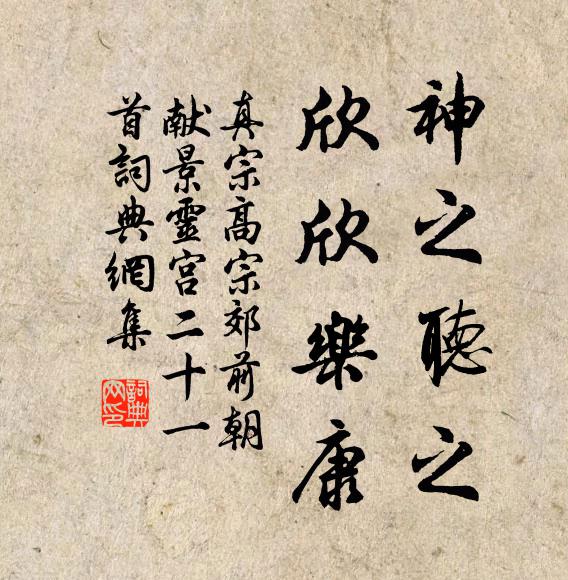 神之聽之
欣欣樂康
真宗高宗郊前朝
献景靈宮二十一
首詞典網集
詞典网印